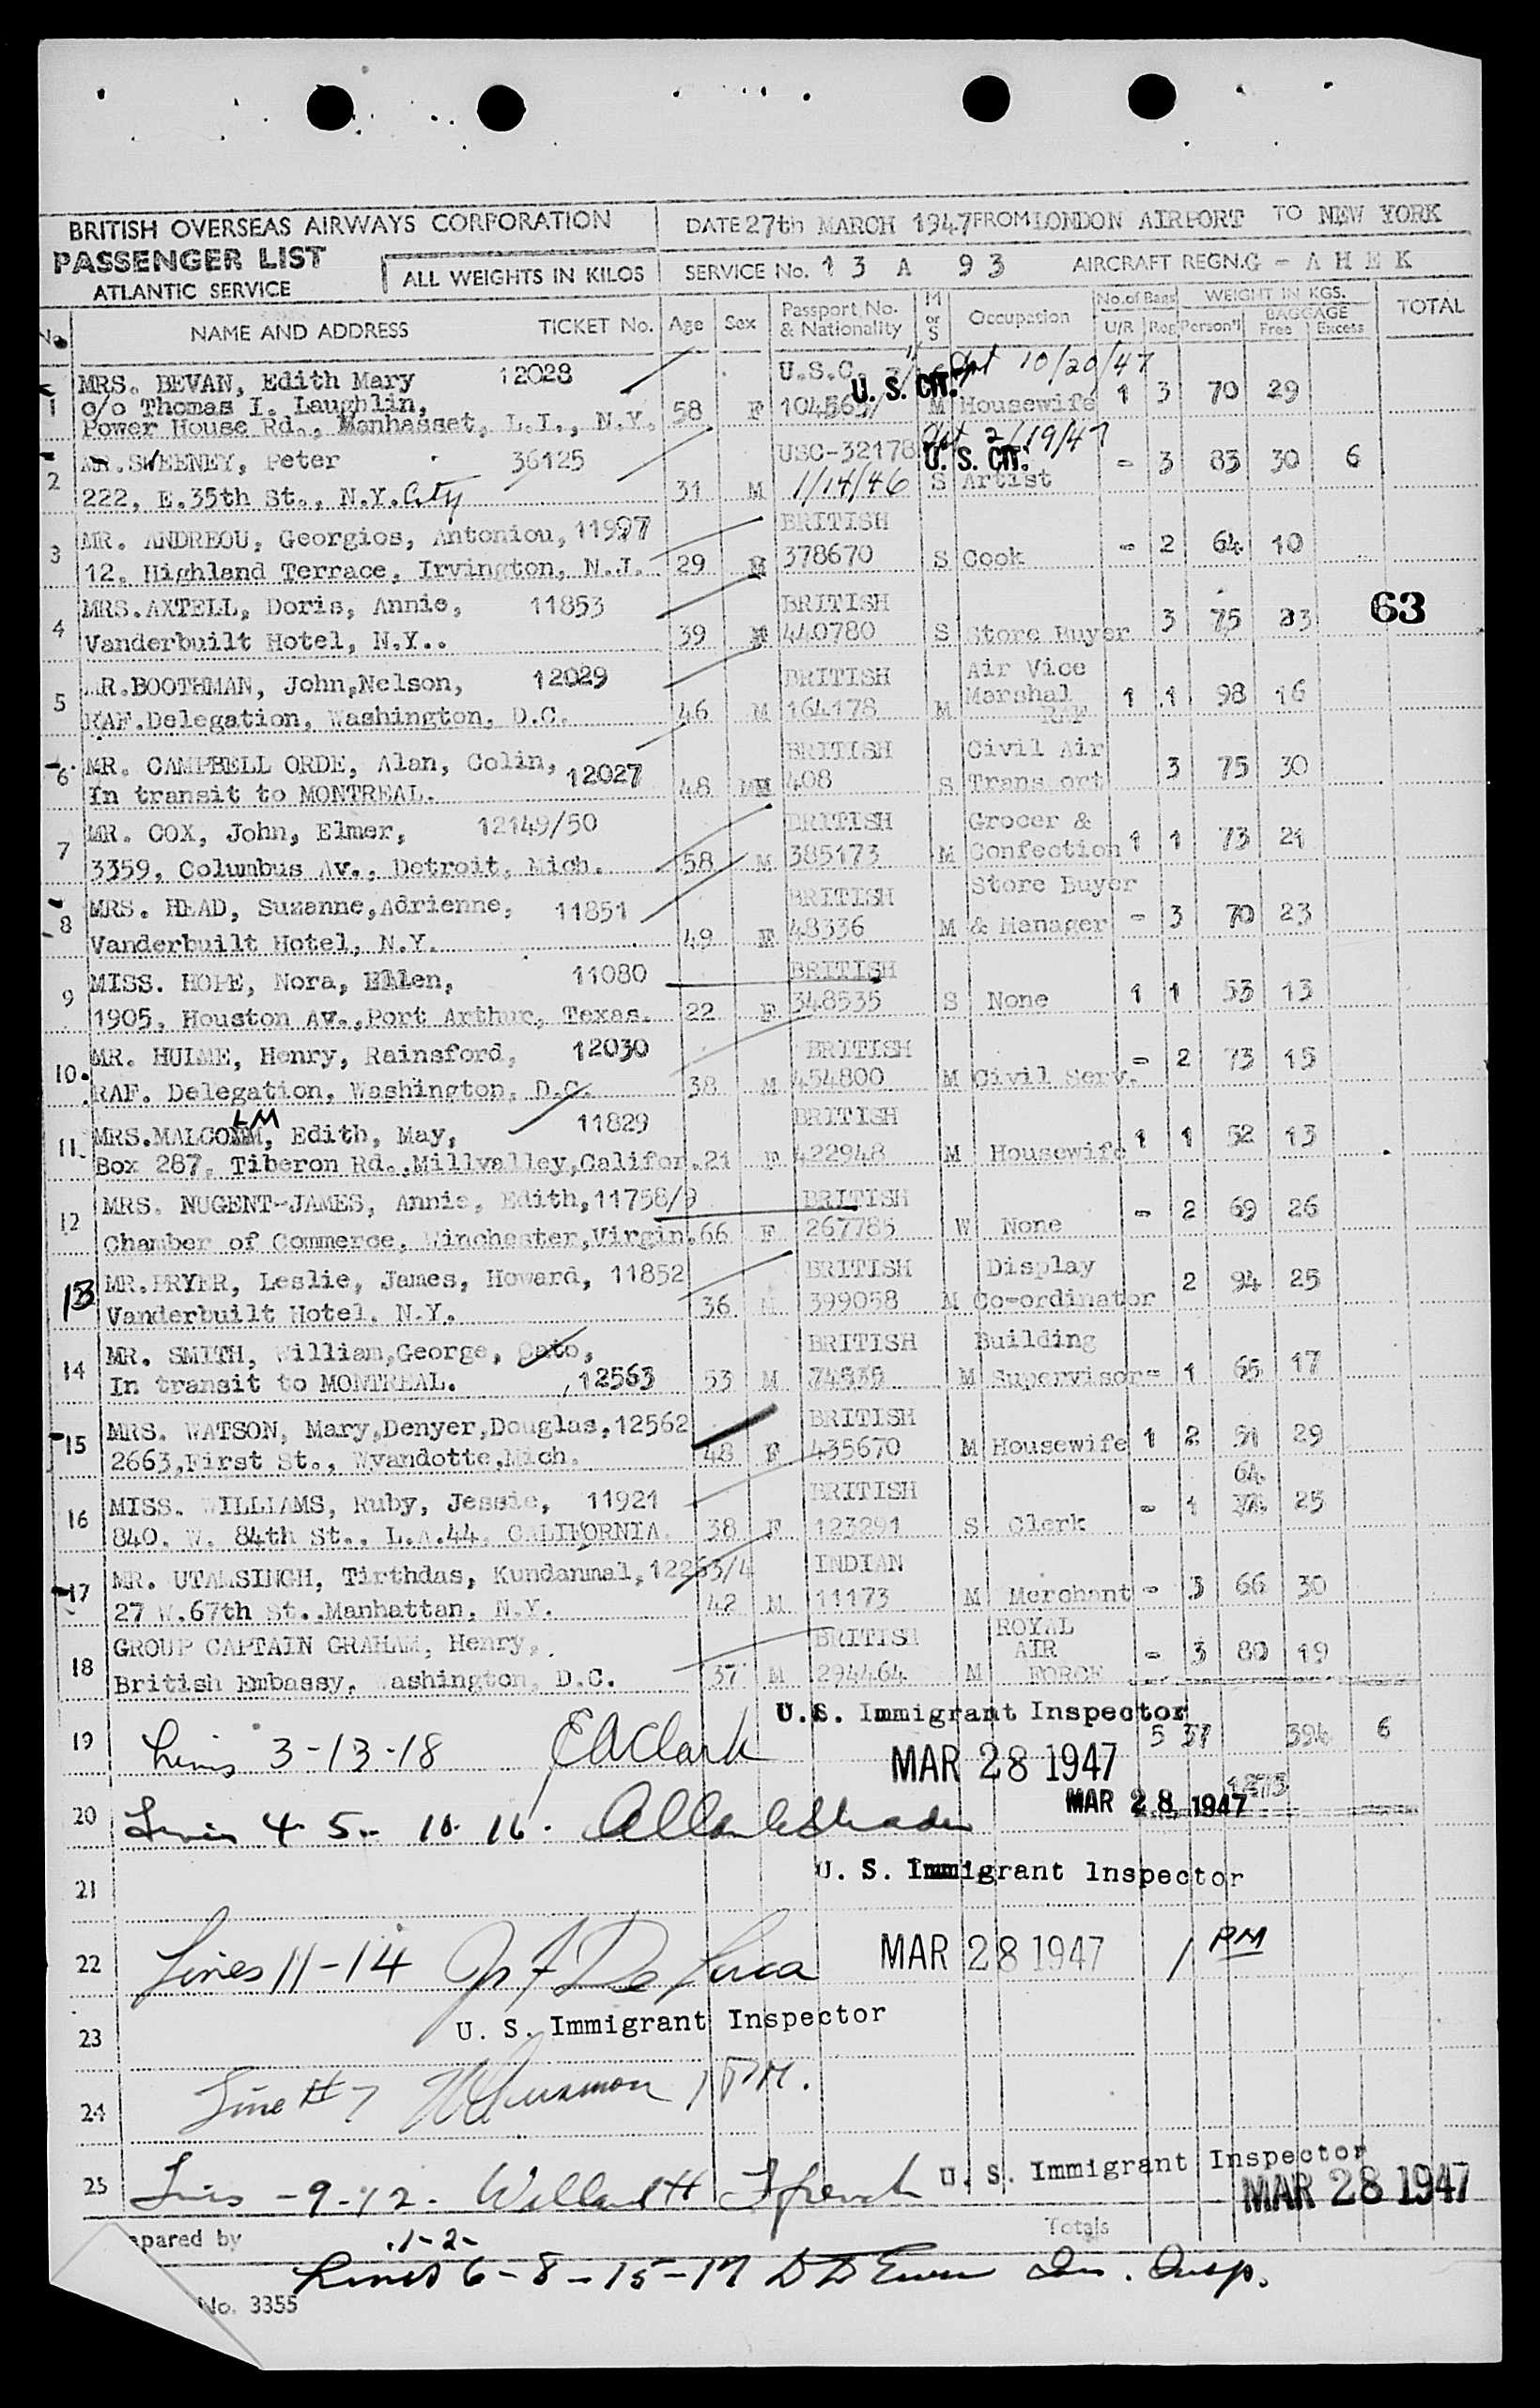 BRITISH OVERSEAS AIRWAYS CORPORATION DATE 27th MARCH 1947 FROM LONDON AIRPORT TO NEW YORK
PASSENGER LIST ALL WEIGHTS IN KILOS SERVICE No. 13 A 93 AIRCRAFT REGN. G - A H E K
ATLANTIC SERVICE
No. NAME AND ADDRESS TICKET No. Age Sex Passport No. & Nationality M or S Occupation No. of Bags U/R Reg WEIGHT IN KGS. Person'l BAGGAGE Free Excess TOTAL
MRS. BEVAN, Edith Mary 12028 U.S.C. 10/20/47
U. S. CIT.
1 c/o Thomas I. Laughlin, 58 F M Housewife 1 3 70 29
Power House Rd., Manhasset, L.I., N.Y.
MR. SWEENEY, Peter 36125 USC-32178 2/19/47
U. S. CIT.
2 222, E.35th St., N.Y. City 31 M 1/14/46 S Artist - 3 83 30 6
MR. ANDREOU, Georgios, Antoniou, 11997 BRITISH
3 12, Highland Terrace, Irvington, N.J. 29 M 378670 S Cook - 2 64 10
MRS. AXTELL, Doris, Annie, 11853 BRITISH
4 Vanderbuilt Hotel, N.Y.. 39 440780 S Store Buyer 3 75 23 63
MR. BOOTHMAN, John, Nelson, 12029 BRITISH Air Vice
5 RAF. Delegation, Washington, D.C. 46 M 164178 M Marshal RAF 1 1 98 16
6 MR. CAMPBELL ORDE, Alan, Colin, 12027 BRITISH Civil Air
In transit to MONTREAL. 48 M 408 S Transport 3 75 30
MR. COX, John, Elmer, 12149/50 BRITISH Grocer &
7 3359, Columbus Av., Detroit, Mich. 58 M 385173 M Confection 1 1 73 21
MRS. HEAD, Suzanne, Adrienne, 11851 BRITISH Store Buyer
8 Vanderbuilt Hotel, N.Y. 49 F 48336 M & Manager - 3 70 23
MISS. HOPE, Nora, Ellen, 11080 BRITISH
9 1905, Houston Av., Port Arthur, Texas. 22 F 348535 S None 1 1 53 13
MR. HULME, Henry, Rainsford, 12030 BRITISH
10. RAF. Delegation, Washington, D.C. 38 M 454800 M Civil Serv. - 2 73 15
LM
MRS. MALCOLM, Edith, May, 11829 BRITISH
11 Box 287, Tiberon Rd., Millvalley, Califor. 21 F 422948 M Housewife 1 1 52 13
MRS. NUGENT-JAMES, Annie, Edith, 11758/9 BRITISH
12 Chamber of Commerce, Winchester, Virgin. 66 F 267785 W None - 2 69 26
MR. PRYER, Leslie, James, Howard, 11852 BRITISH Display
13 Vanderbuilt Hotel, N.Y. 36 M 399058 M Co-ordinator 2 94 25
MR. SMITH, William, George, Cato, BRITISH Building
14 In transit to MONTREAL. 12563 53 M 74535 M Supervisor - 1 65 17
MRS. WATSON, Mary, Denyer, Douglas, 12562 BRITISH
15 2663, First St., Wyandotte, Mich. 48 F 435670 M Housewife 1 2 51 29
MISS. WILLIAMS, Ruby, Jessie, 11921 BRITISH 64
16 840. W. 84th St., L.A.44, CALIFORNIA. 38 F 123291 S Clerk - 1 25
MR. UTAMSINGH, Tirthdas, Kundanmal, 12263/4 INDIAN
17 27 W. 67th St., Manhattan, N.Y. 42 M 11173 M Merchant - 3 66 30
GROUP CAPTAIN GRAHAM, Henry, BRITISH ROYAL
18 British Embassy, Washington, D.C. 37 M 294464 M AIR FORCE - 3 80 19
U.S. Immigrant Inspector
19 Lines 3-13-18 EAClark MAR 28 1947 5 37 394 6
MAR 28 1947 1273
20 Lines 4. 5. 10. 16.
21 U. S. Immigrant Inspector
22 Lines 11-14 De Luca MAR 28 1947 1 PM
23 U. S. Immigrant Inspector
24 Line # 7 1 P.M.
U. S. Immigrant Inspector
25 Lines -9-12. Willard H French MAR 28 1947
epared by Totals
1-2-
Lines 6-8-15-17 Im. Insp.
No. 3355